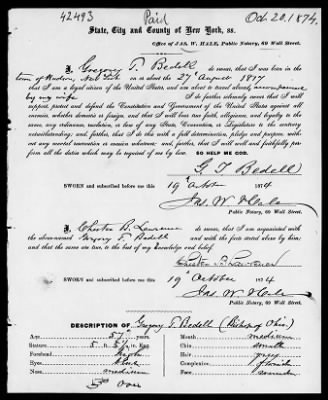 42493 Paid Oct. 20. 1874.
State, City and County of New York, ss.
Office of JAS. W. HALE, Public Notary, 69 Wall Street.
I, Gregory T. Bedell do swear, that I was born in the
town of Hudson, New York on or about the 27th August 1817
that I am a legal citizen of the United States, and am about to travel abroad, accompanied
by my wife And I further solemnly swear that I will
support, protect and defend the Constitution and Government of the United States against all
enemies, whether domestic or foreign, and that I will bear true faith, allegiance, and loyalty to the
same, any ordinance, resolution, or law of any State, Convention, or Legislature to the contrary
notwithstanding; and further, that I do this with a full determination, pledge, and purpose, without
any mental reservation or evasion whatever; and, further, that I will well and faithfully per-
form all the duties which may be required of me by law. SO HELP ME GOD.
G. T. Bedell
SWORN and subscribed before me this
19th October 1874
Jas. W. Hale
Public Notary, 69 Wall Street.
I, Chester B. Lawrence do swear, that I am acquainted with
the above-named Gregory T. Bedell and with the facts stated above by him;
and that the same are true, to the best of my Knowledge and belief.
Chester B. Lawrence
SWORN and subscribed before me this
19th October 1874
Jas. W. Hale
Public Notary, 69 Wall Street.
DESCRIPTION OF Gregory T. Bedell (Bishop of Ohio)
Age, 57 years Mouth medium
Stature, 5 ft. Eng. Chin small
Forehead high Hair grey
Eyes blue Complexion florid
Nose medium Face